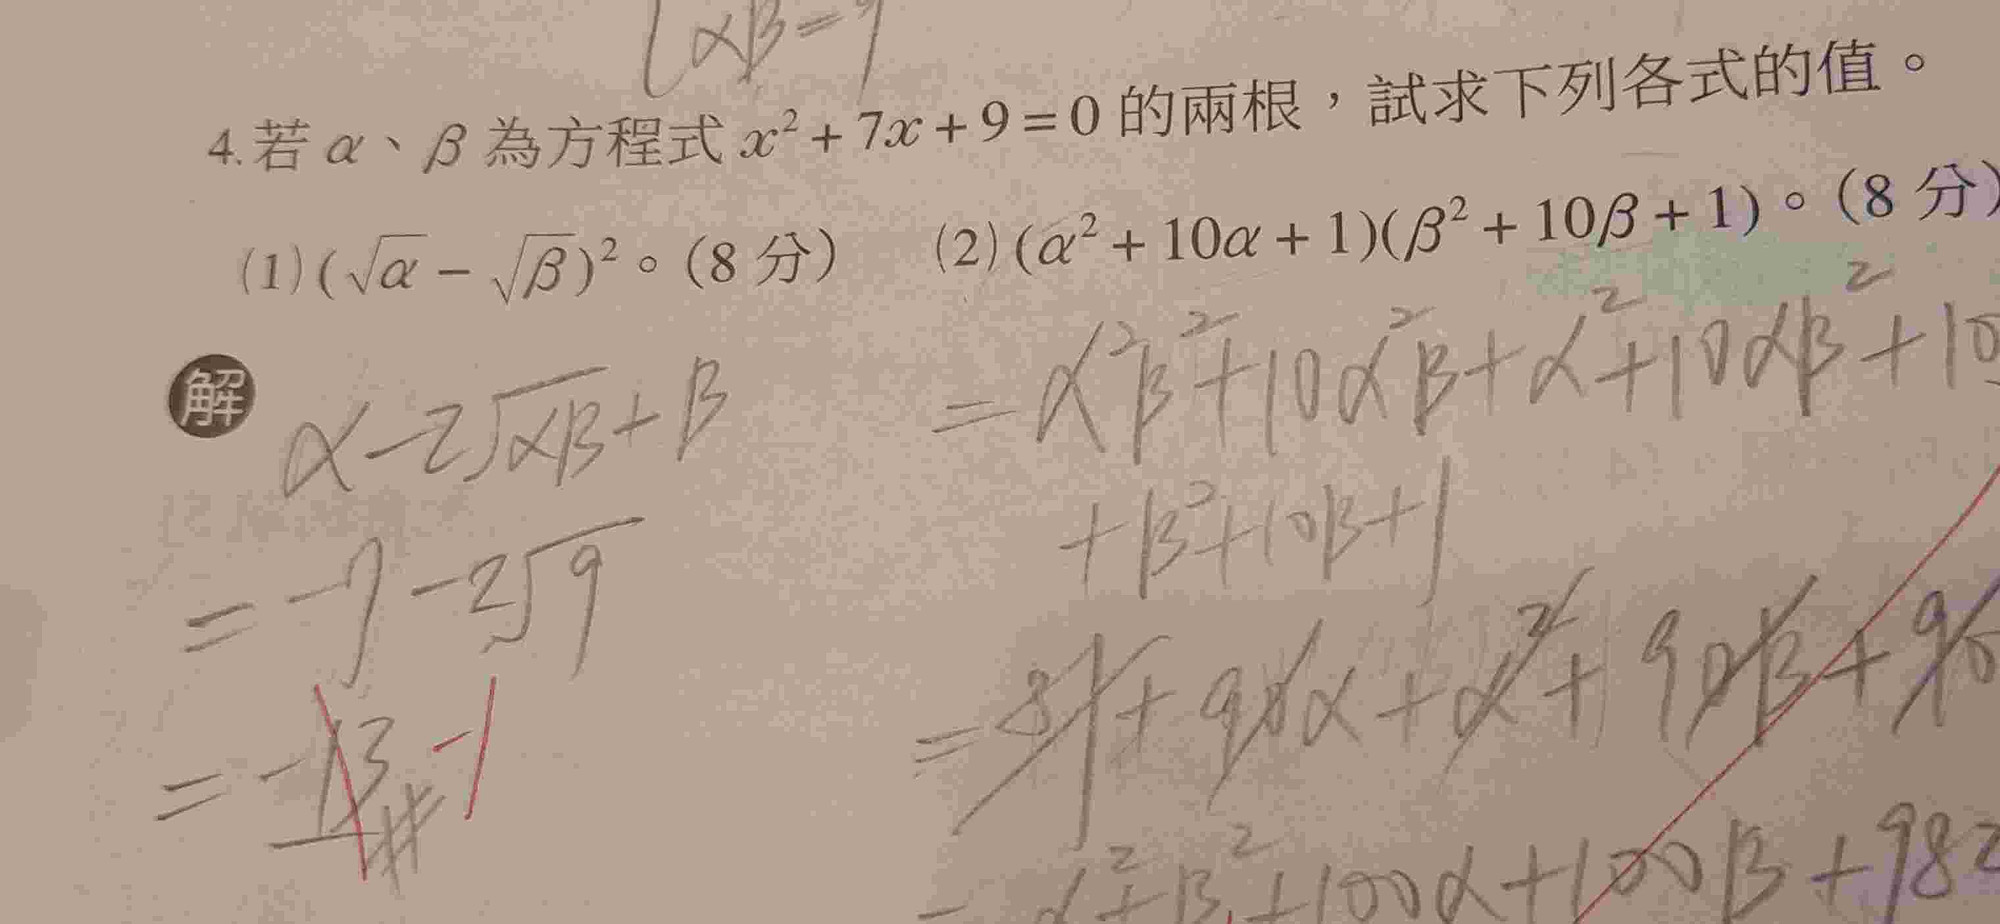 αβ=9
4.若 α、β 為方程式 x²+7x+9=0 的兩根，試求下列各式的值。
(1)(√α-√β)²。(8 分) (2)(α²+10α+1)(β²+10β+1)。(8 分)
解
α-2√αβ+β
=-7-2√9
=-13 -1
=α²β²+10α²β+α²+10αβ²+10
+β²+10β+1
=81+90α+α²+90β+90
=α²+β²+100α+100β+982